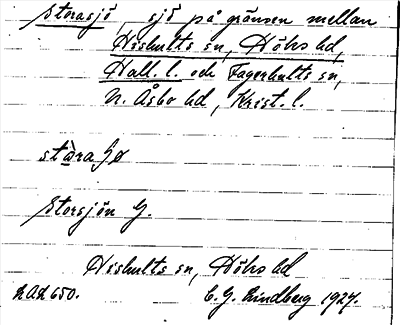 Storasjö, sjö på gränsen mellan
Hishults sn, Höks hd,
Hall. l. och Fagerhults sn,
N. Åsbo hd, Krist. l.
stòra ʃø
Storsjön G.
Hishults sn, Höks hd
LAL 650. C. G. Lindberg 1927.